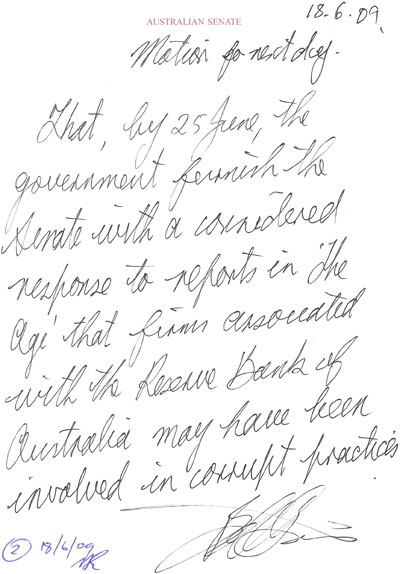 AUSTRALIAN SENATE
18.6.09
Motion for next day.
That, by 25 June, the
government furnish the
Senate with a considered
response to reports in 'The
Age' that firms associated
with the Reserve Bank of
Australia may have been
involved in corrupt practices
2 18/6/09